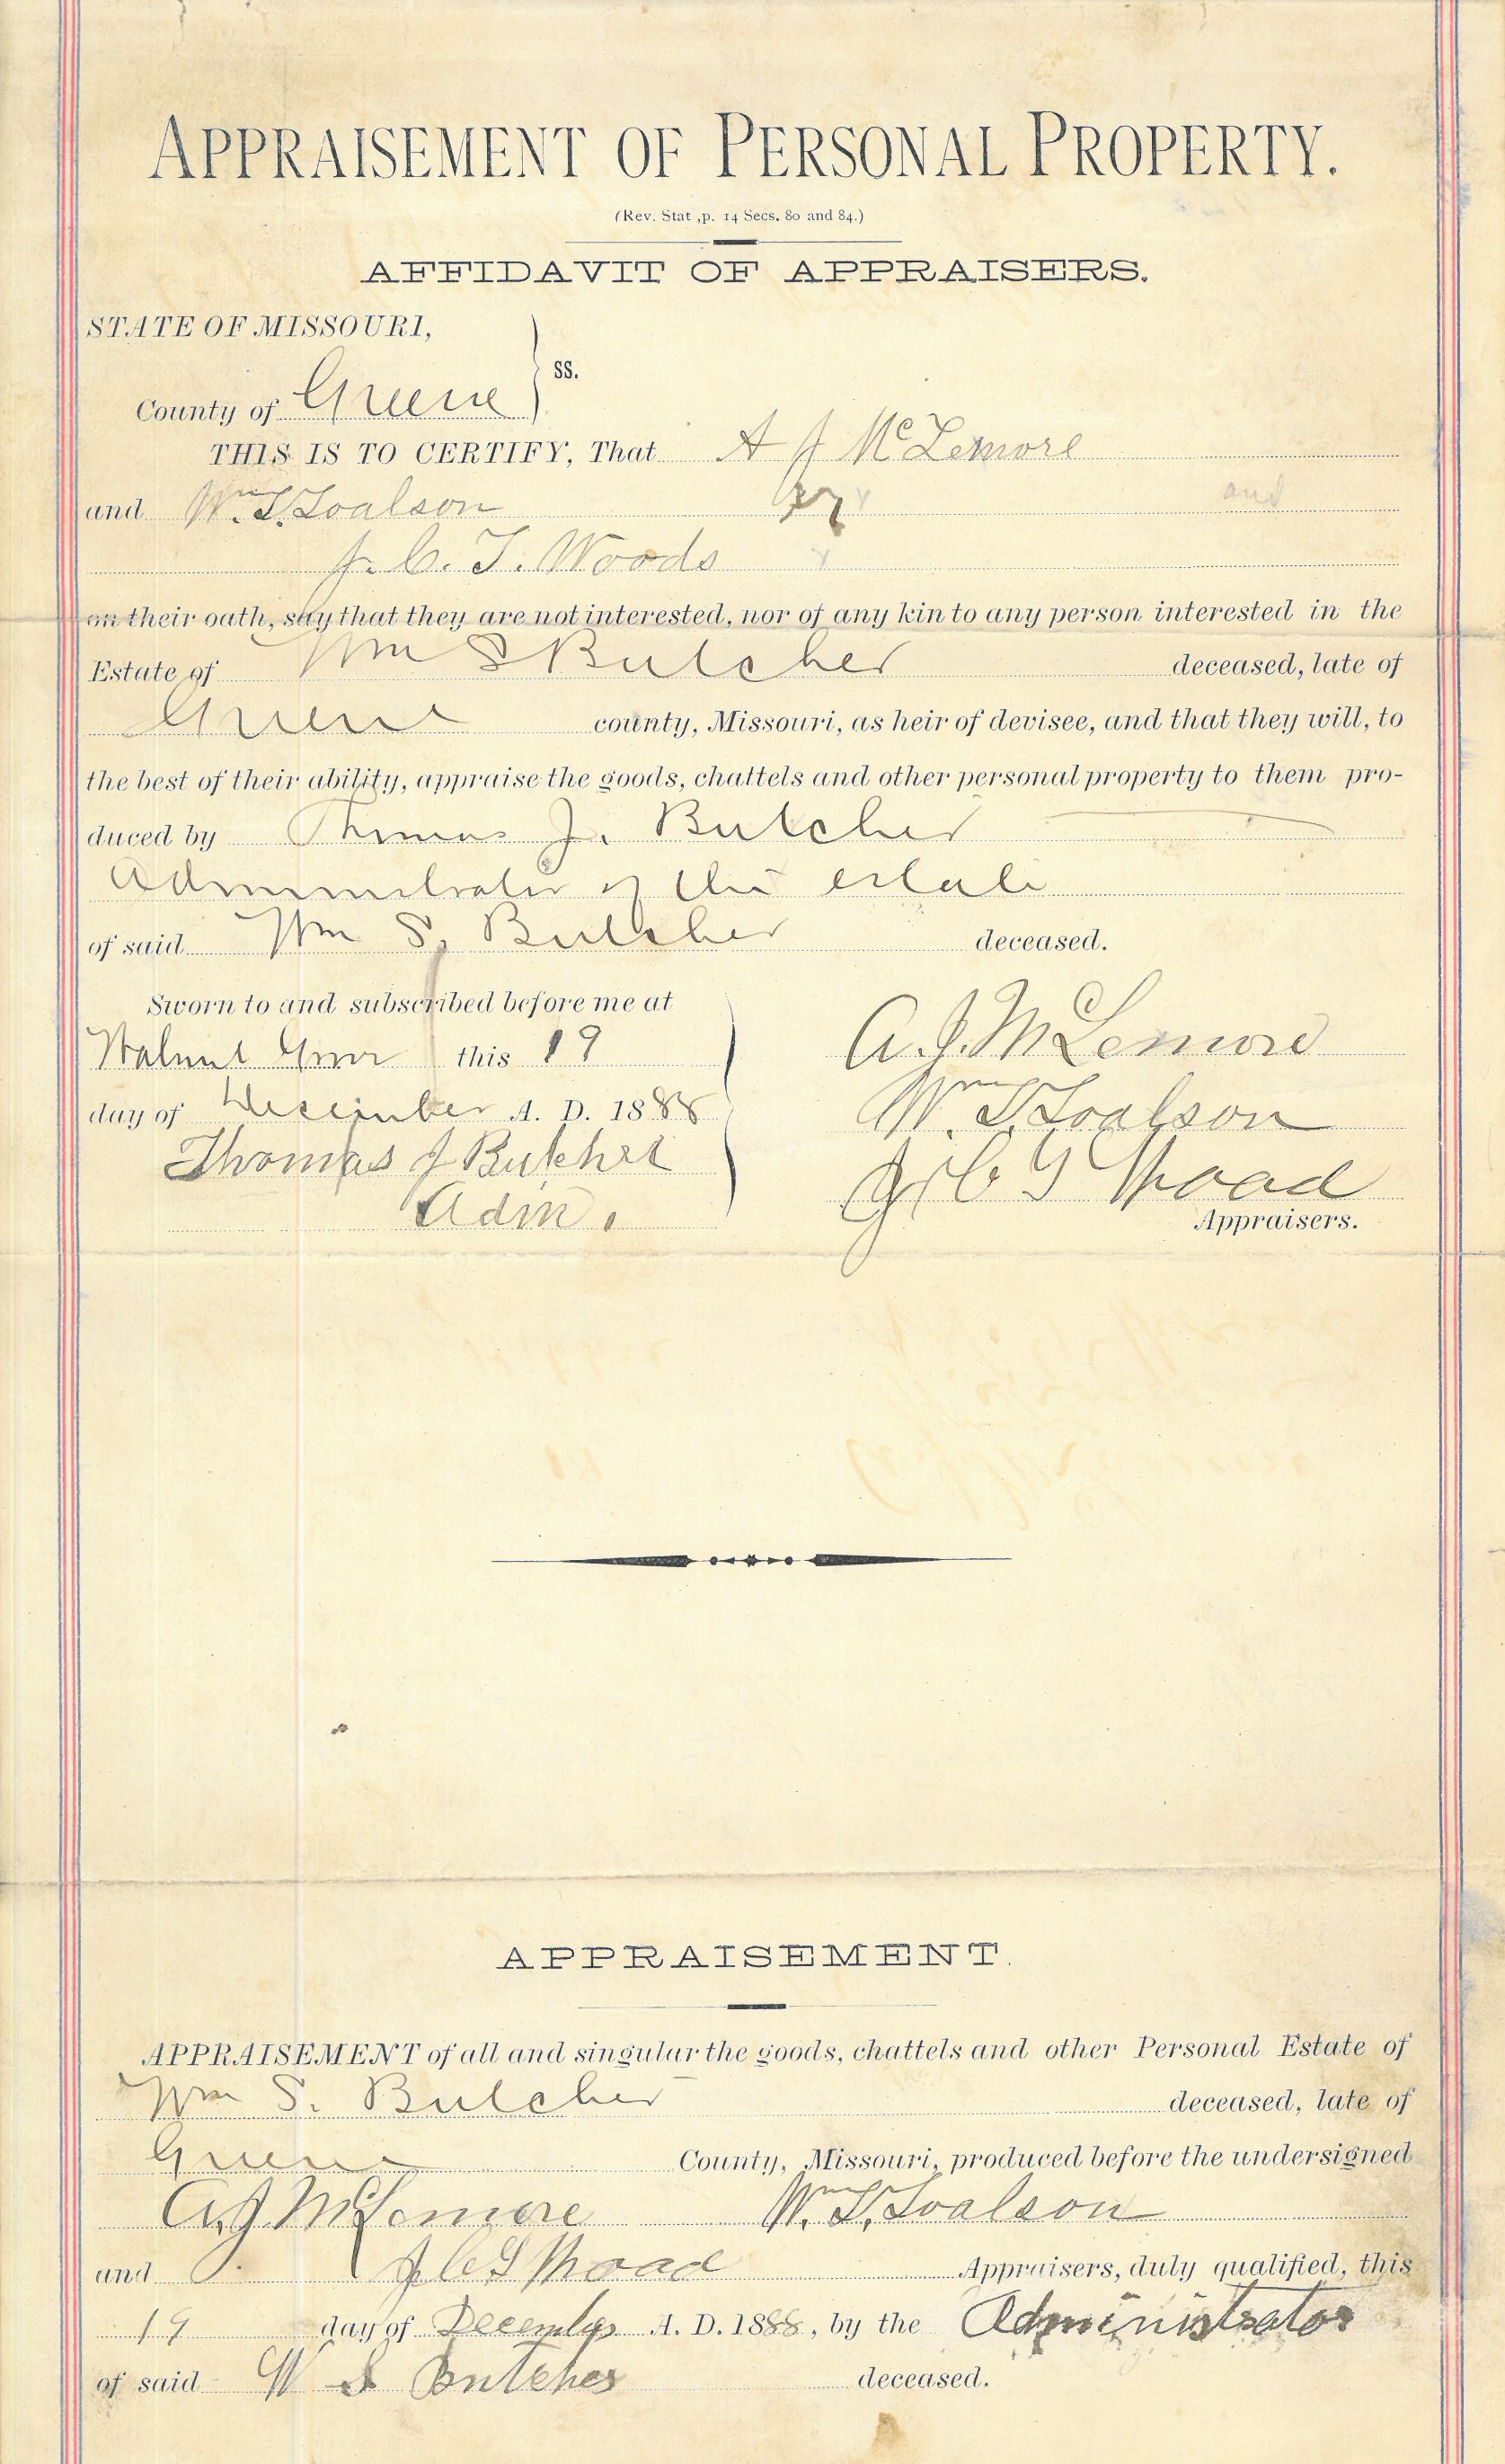 APPRAISEMENT OF PERSONAL PROPERTY.
(Rev. Stat ,p. 14 Secs. 80 and 84.)
AFFIDAVIT OF APPRAISERS.
STATE OF MISSOURI,
ss.
County of Greene
THIS IS TO CERTIFY, That A J McLemore
and Wm. T. Toalson and
J. C. T. Woods
on their oath, say that they are not interested, nor of any kin to any person interested in the
Estate of Wm S Butcher deceased, late of
Greene county, Missouri, as heir of devisee, and that they will, to
the best of their ability, appraise the goods, chattels and other personal property to them pro-
duced by Thomas J. Butcher
Administrator of the estate
of said Wm S. Butcher deceased.
Sworn to and subscribed before me at
Walnut Grove this 19
day of December A. D. 1888
Thomas J Butcher
Adm.
A. J. McLemore
Wm. T. Toalson
J C T Woad
Appraisers.
APPRAISEMENT.
APPRAISEMENT of all and singular the goods, chattels and other Personal Estate of
Wm S. Butcher deceased, late of
Greene County, Missouri, produced before the undersigned
A. J. McLemore Wm. T. Toalson
and J C T Woad Appraisers, duly qualified, this
19 day of December A. D. 1888, by the Administrator
of said W S Butcher deceased.